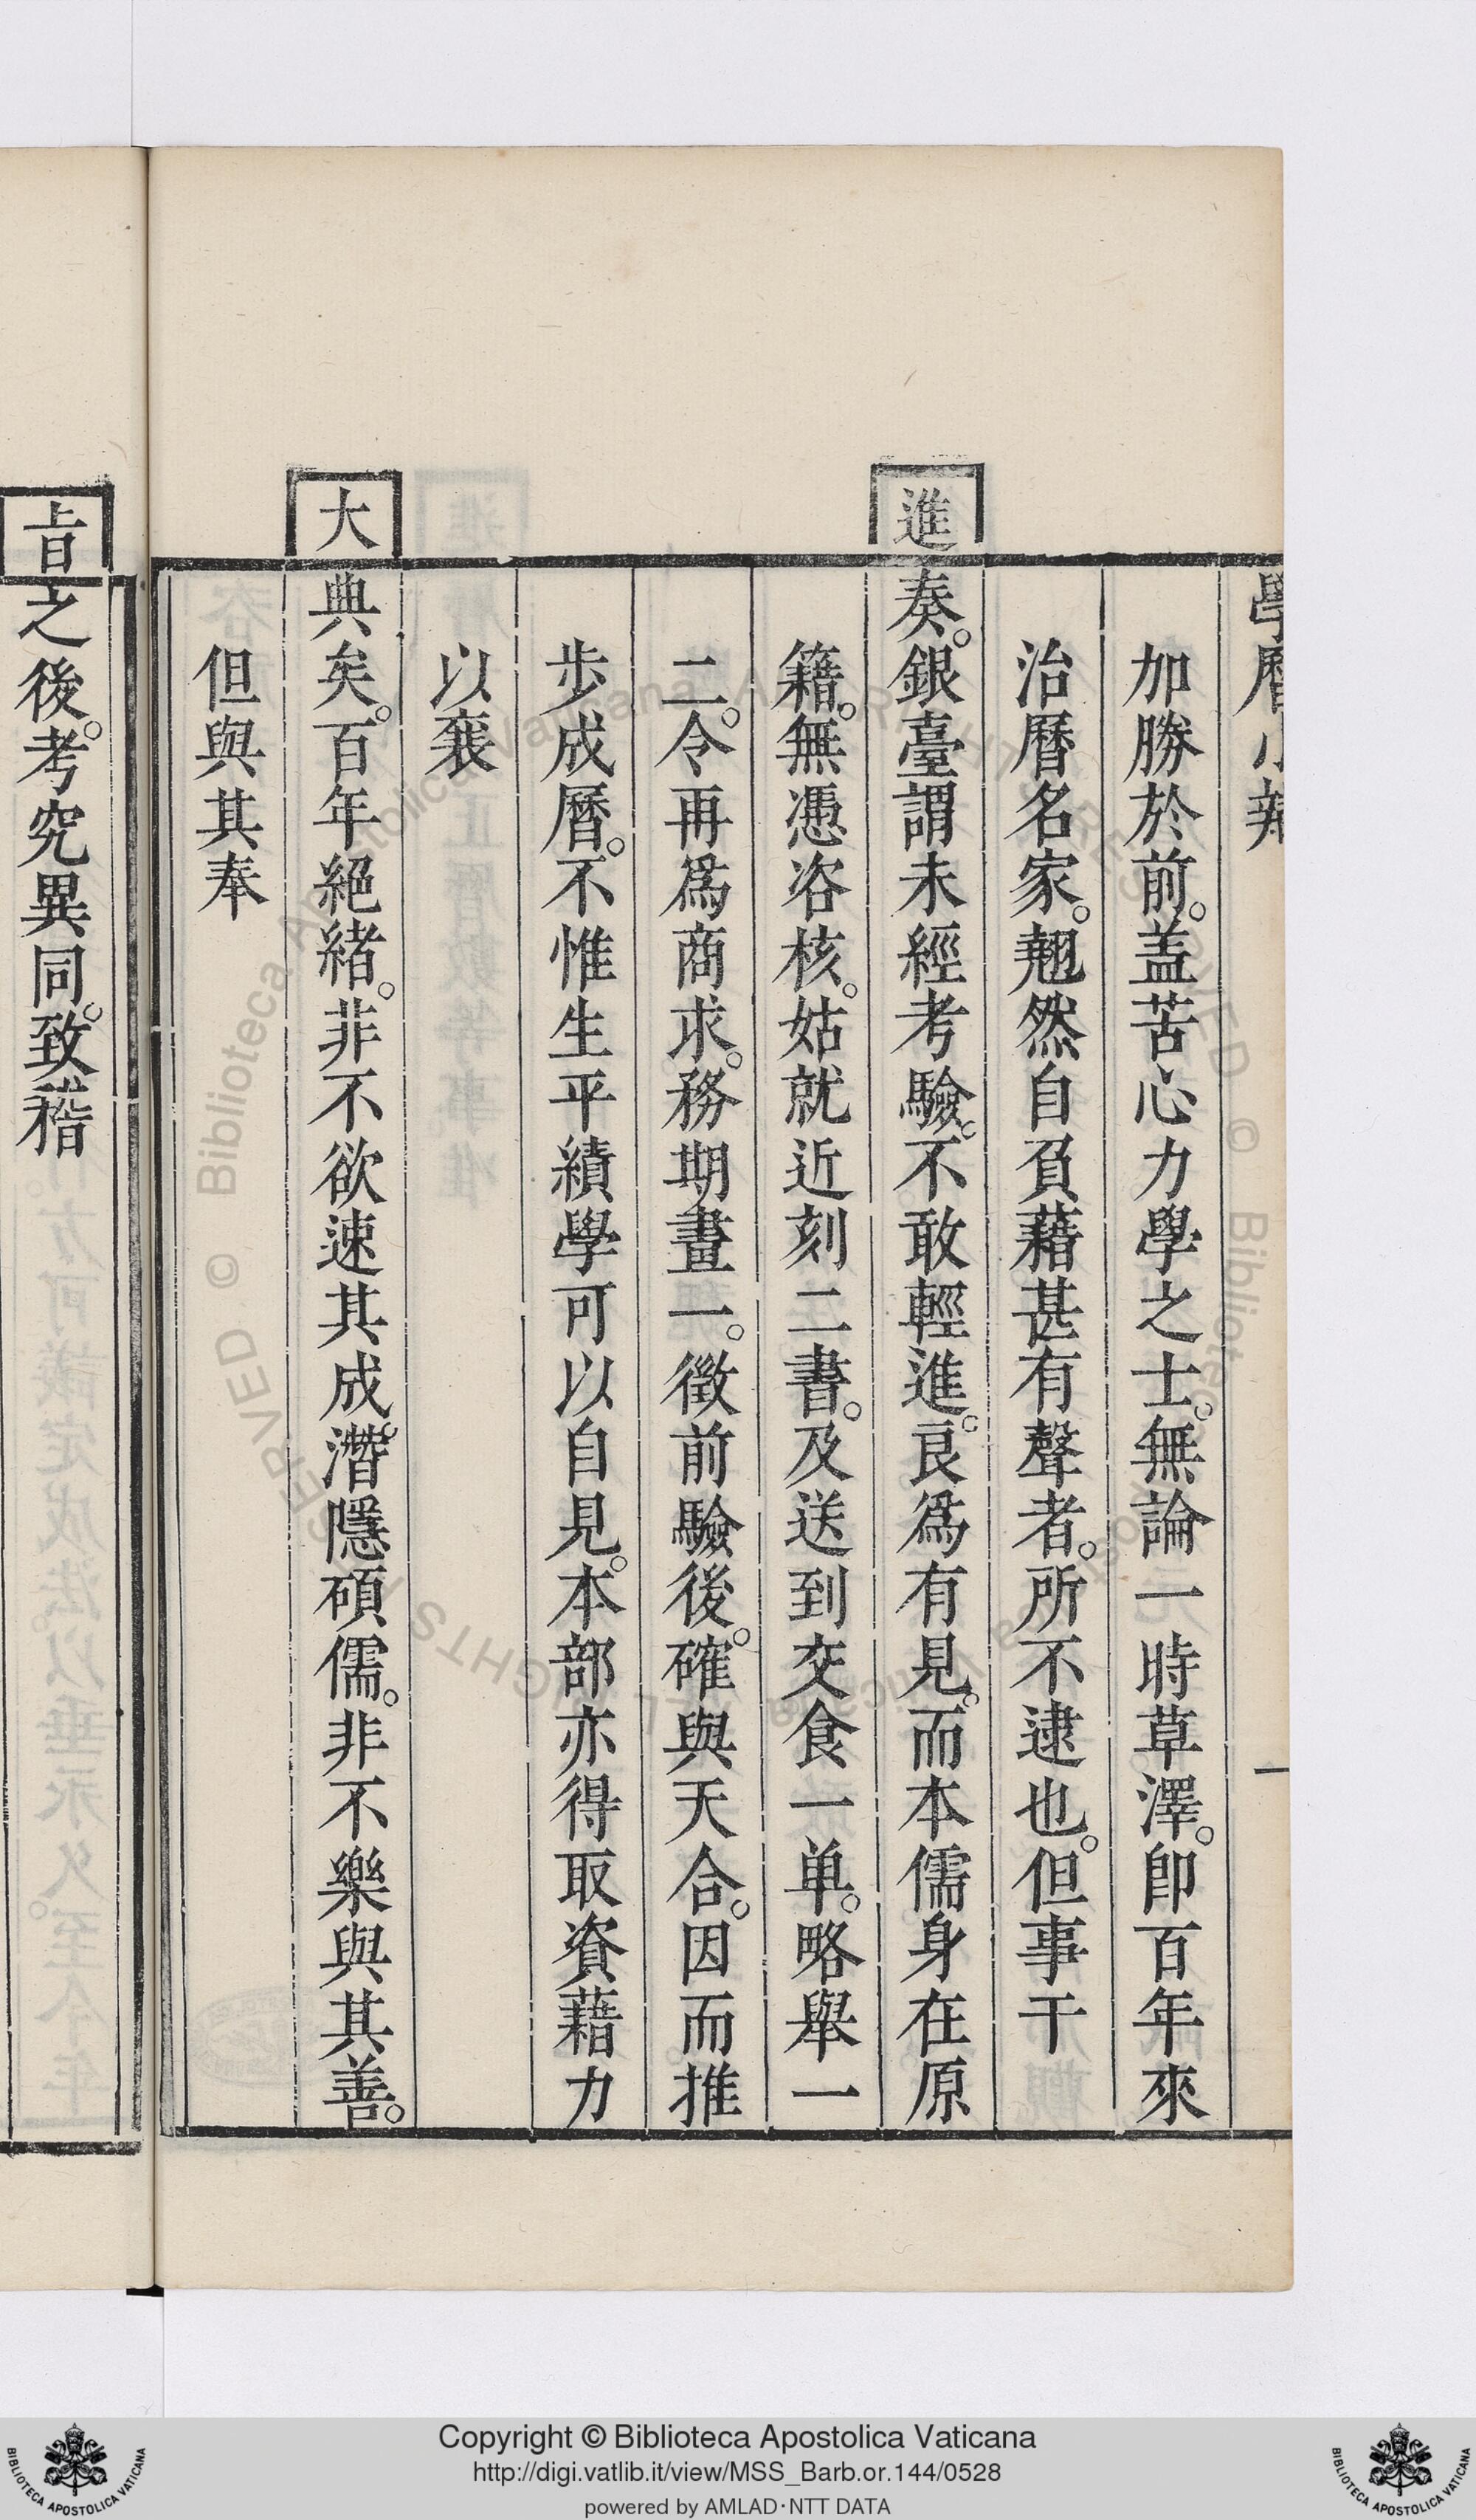 學曆小辯
一
加勝於前。盖苦心力學之士。無論一時草澤。卽百年來
治曆名家。翹然自負藉甚有聲者。所不逮也。但事干
進奏。銀臺謂未經考驗。不敢輕進。良爲有見。而本儒身在原
籍。無憑咨核。姑就近刻二書。及送到交食一单。略舉一
二。令再爲商求。務期畫一。徵前驗後。確與天合。因而推
步成曆。不惟生平績學可以自見。本部亦得取資藉力
以襄
大典矣。百年絕緒。非不欲速其成。潛隱碩儒。非不樂與其善。
但與其奉
旨之後。考究異同。致稽
Copyright © Biblioteca Apostolica Vaticana
http://digi.vatlib.it/view/MSS_Barb.or.144/0528
powered by AMLAD·NTT DATA